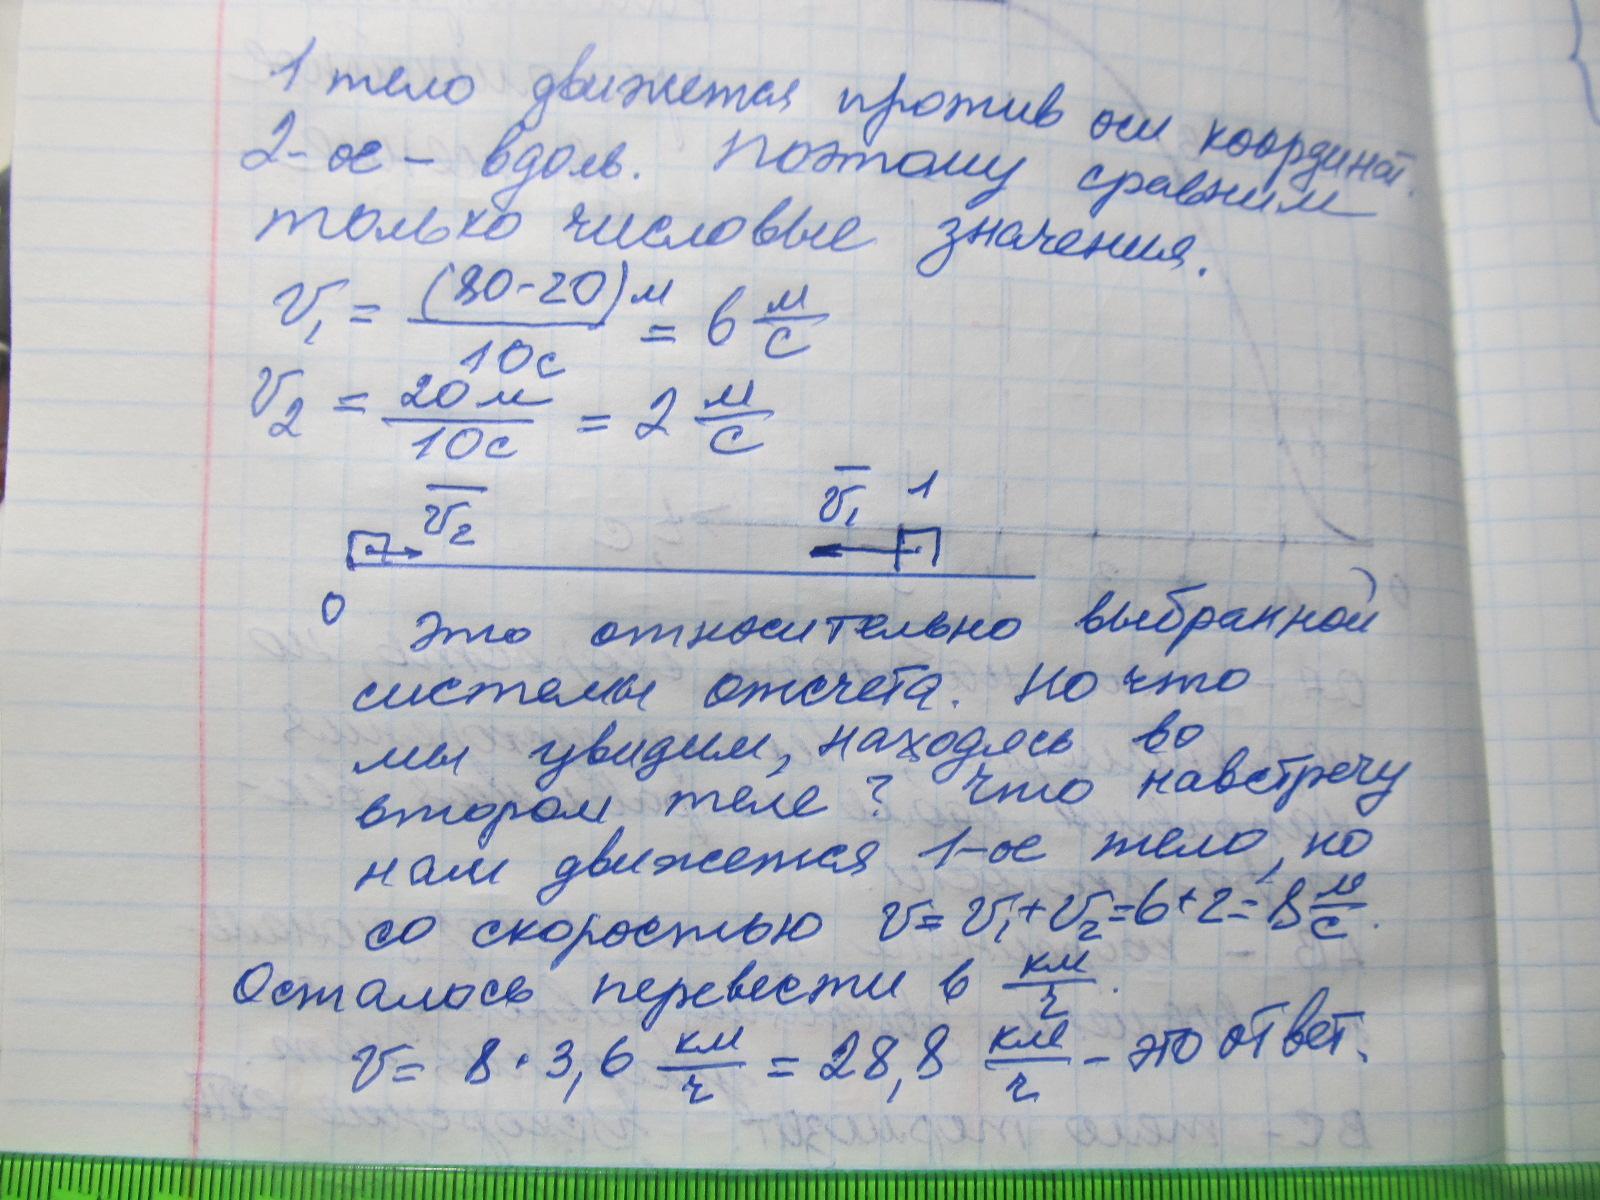 1 тело движется против оси координат.
2-ое - вдоль. Поэтому сравним
только числовые значения.
v₁ = (80-20)м / 10с = 6 м/с
v₂ = 20м / 10с = 2 м/с
v̅₂ v̅₁ 1
0
Это относительно выбранной
системы отсчета. Но что
мы увидим, находясь во
втором теле? Что навстречу
нам движется 1-ое тело, но
со скоростью v = v₁+v₂=6+2=8 м/с.
Осталось перевести в км/ч.
v = 8·3,6 км/ч = 28,8 км/ч - это ответ.